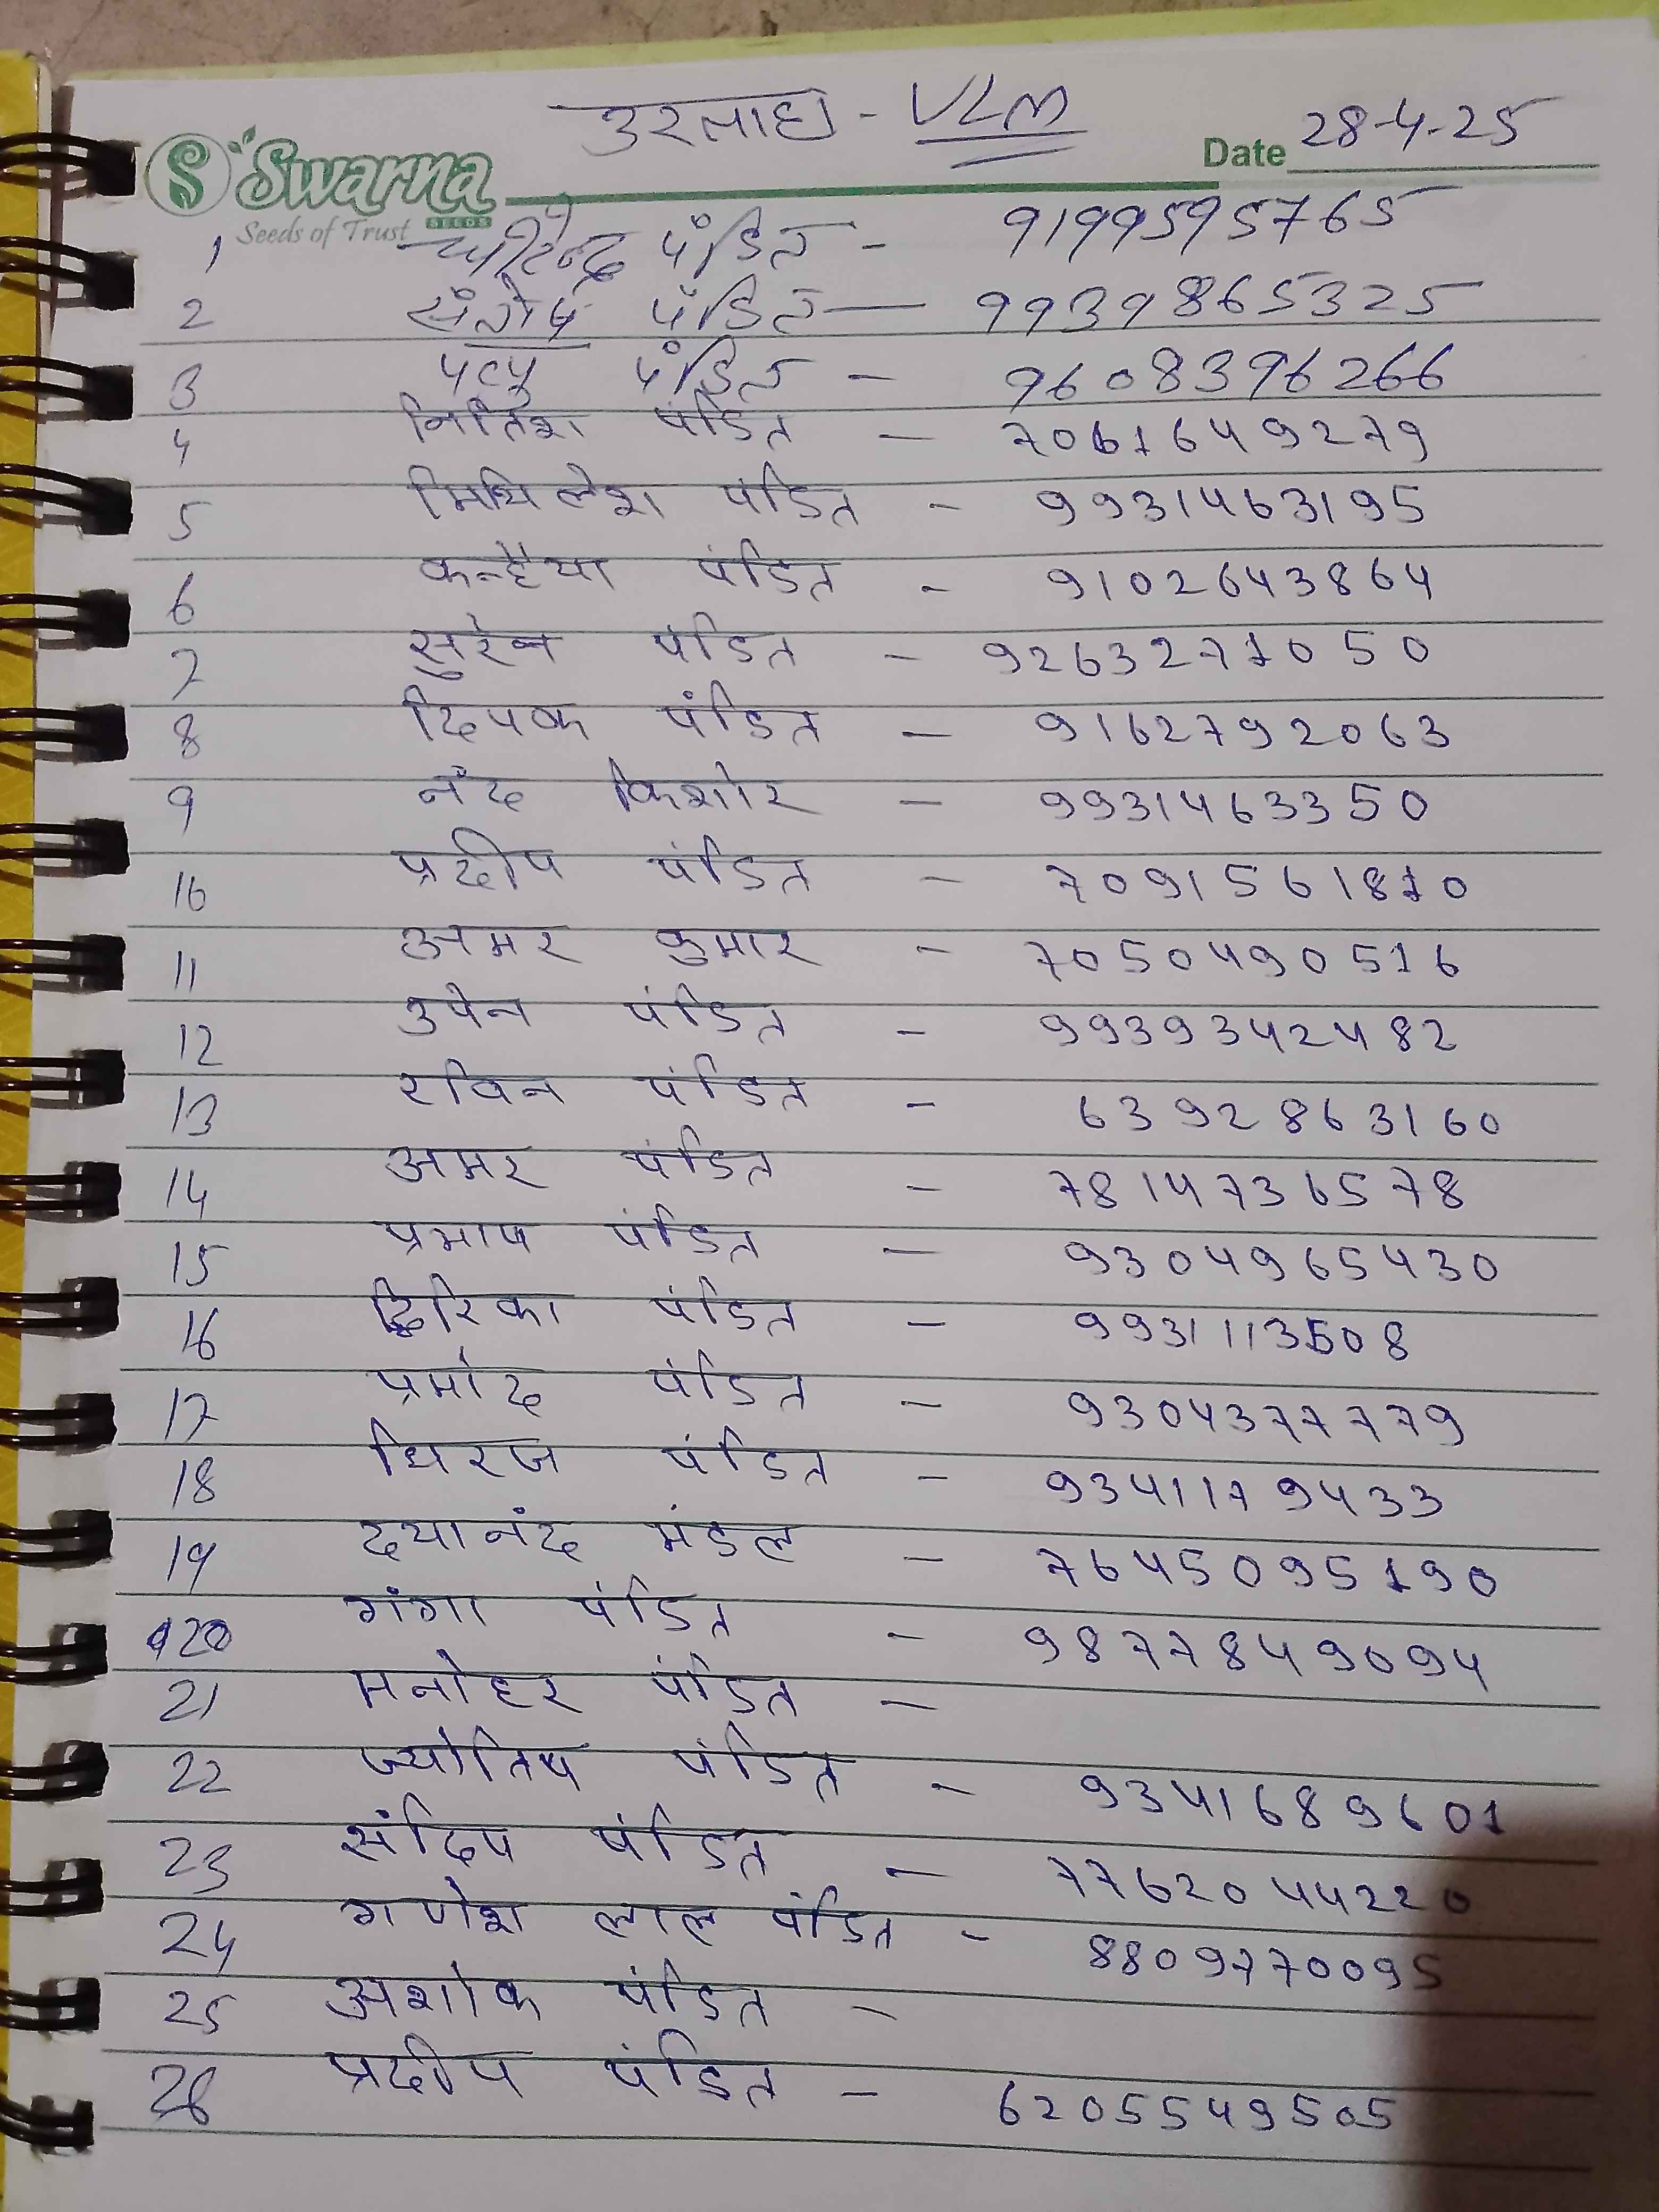 उरसाहा - VLM
Swarna SEEDS Date 28-4-25
Seeds of Trust
1 पंडित - 9199595765
2 संतोष पंडित — 9939865325
3 पप्पु पंडित - 9608396266
4 नितिश पंडित - 7061649279
5 मिथिलेश पंडित - 9931463195
6 कन्हैया पंडित - 9102643864
7 सुरेन पंडित - 9263271050
8 दिपक पंडित - 9162792063
9 नंद किशोर - 9931463350
10 प्रदीप पंडित - 7091561810
11 अमर कुमार - 7050490516
12 उपेन पंडित - 9939342482
13 रविन पंडित - 6392863160
14 अमर पंडित - 7814736578
15 पंडित - 9304965430
16 द्विरिका पंडित - 9931113508
17 प्रमोद पंडित - 9304377779
18 धिरज पंडित - 9341179433
19 दयानंद मंडल - 7645095190
20 गंगा पंडित - 9877849094
21 मनोहर पंडित -
22 ज्योतिष पंडित - 9341689601
23 संदिप पंडित - 7762044220
24 गणेश लाल पंडित - 8809770095
25 अशोक पंडित -
26 प्रदीप पंडित - 6205549505